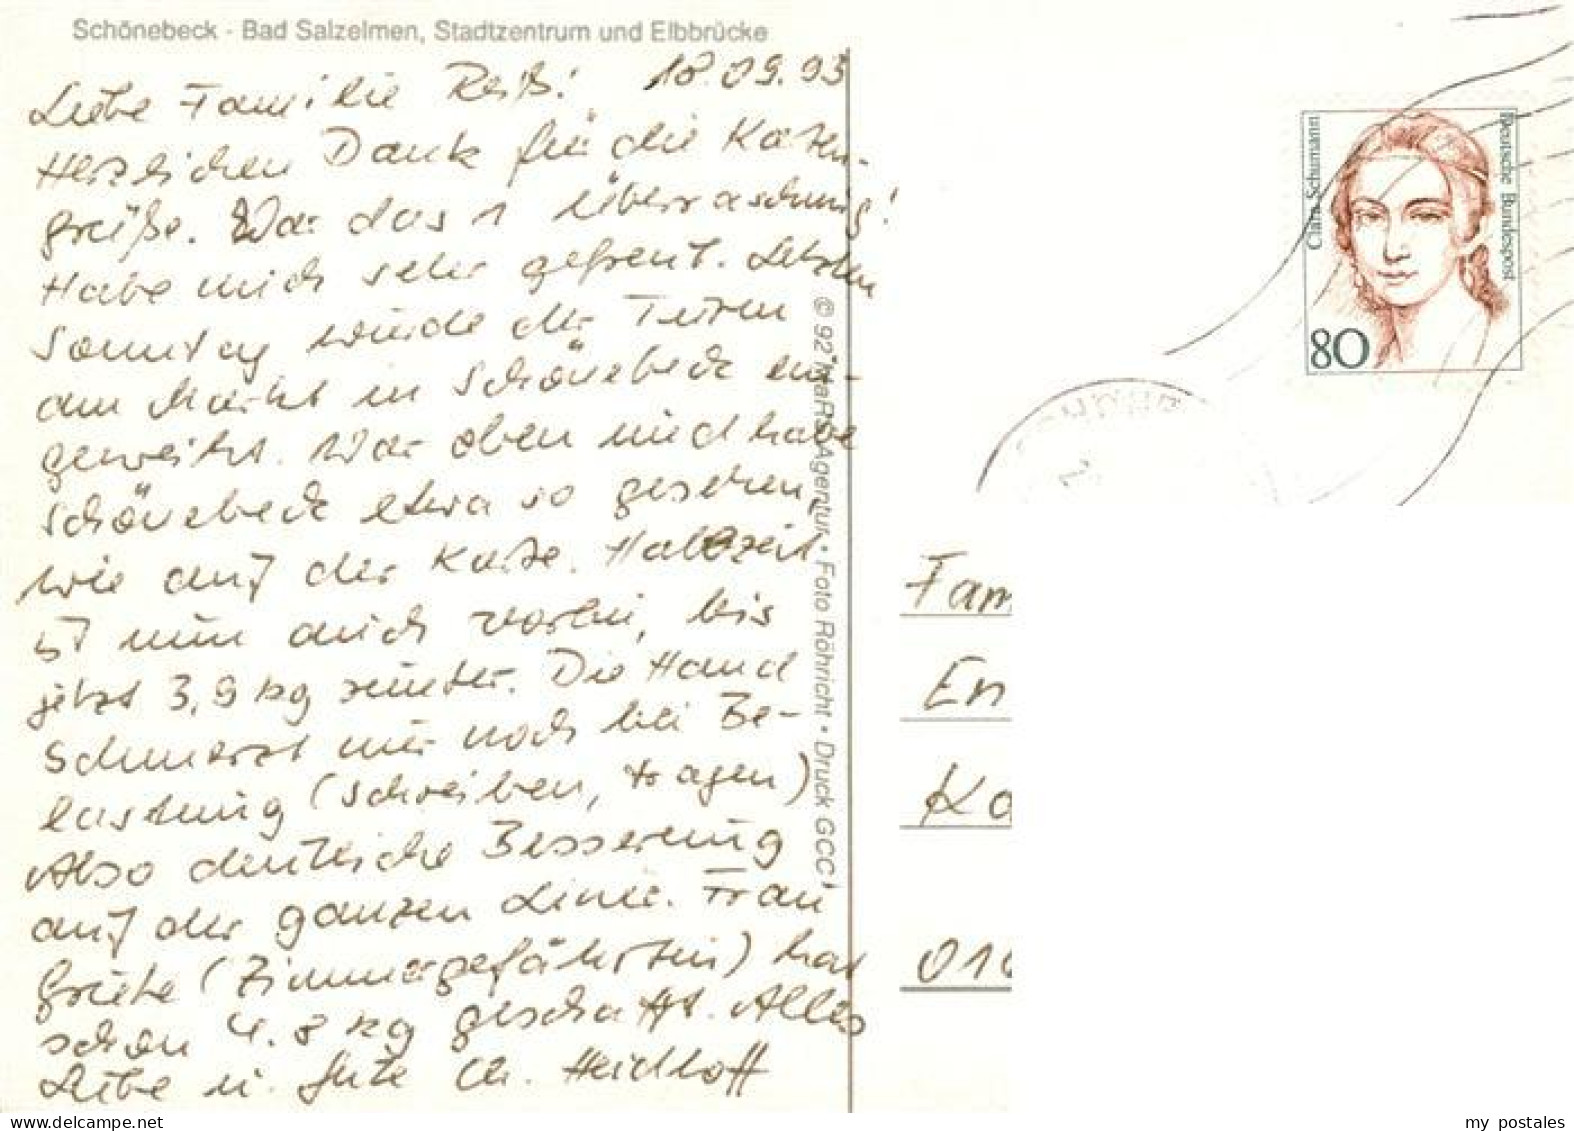 Schönebeck - Bad Salzelmen, Stadtzentrum und Elbbrücke
18.09.93
Liebe Familie Reiß!
Herzlichen Dank für die Karten-
grüße. War das 1 Überraschung!
Habe mich sehr gefreut. Letzten
Sonntag wurde der Turm
am Markt in Schönebeck ein-
geweiht. War oben und habe
Schönebeck etwa so gesehen,
wie auf der Karte. Halbzeit
ist nun auch vorbei, bis
jetzt 3,9 kg runter. Die Hand
schmerzt nur noch bei Be-
lastung (schreiben, tragen)
Also deutliche Besserung
auf der ganzen Linie. Frau
(Zimmergefährtin) hat
schon 4.8 kg geschafft. Alles
Liebe u. Gute Ch. Heidhoff
© 92 MaRS Agentur • Foto Röhricht • Druck GCC
Clara Schumann
Deutsche Bundespost
80
Fam
En
Ka
01
my postales